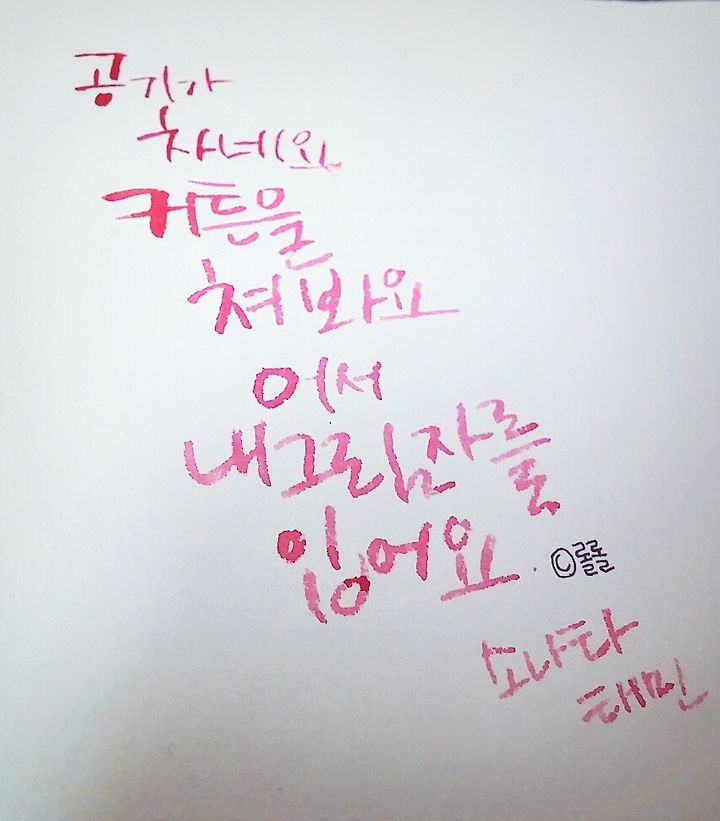 공기가
차네요
커튼을
쳐봐요
어서
내그림자를
입어요.
©롤롤
소나타
태민